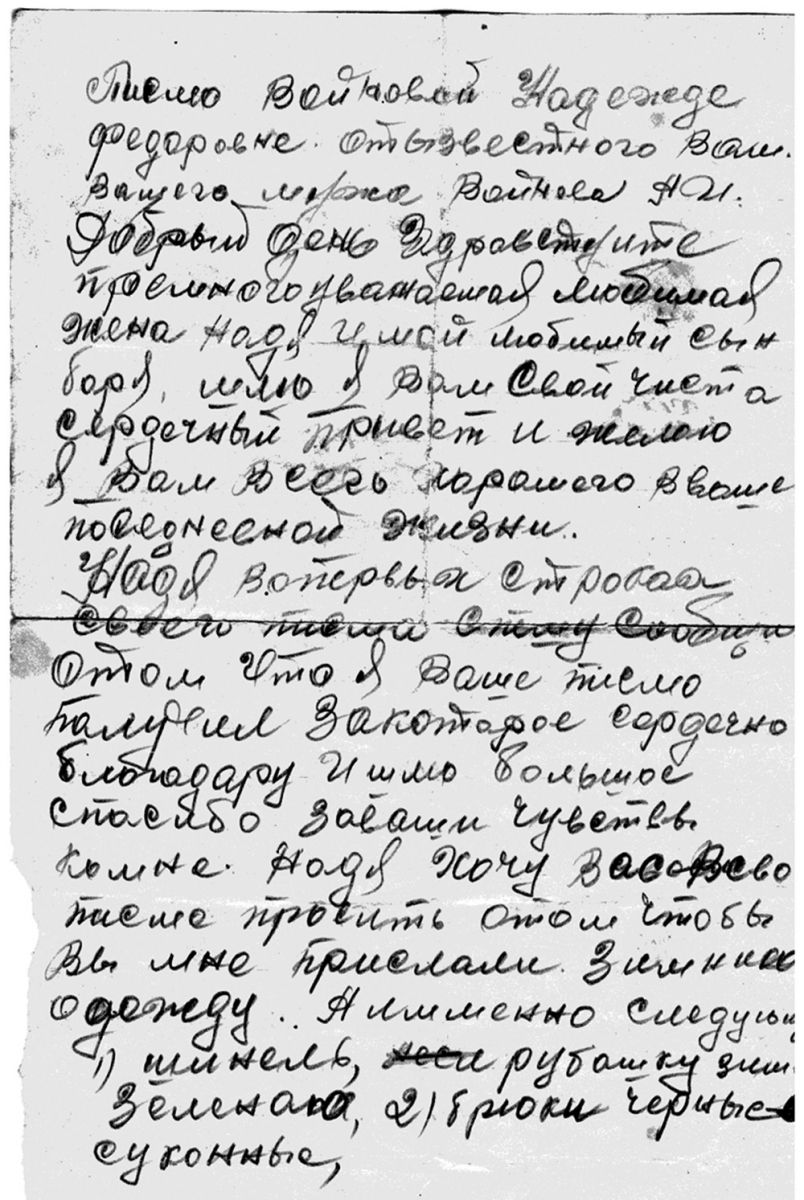 Писмо Войновой Надежде
Федаровне. отызвестного Вам.
Вашего мужа Войнова А И.
Добрый день Здравствуите
премногоуважаемая любимая
жена Надя и мой любимый сын
боря, шлю я Вам Свой чиста
сердечный привет и желаю
я Вам Всего харашего Вваше
поседневной жизни.
Надя Вопервых строках
своего писма сообщи
Отом Что я Ваше писмо
палучил Закоторое сердечно
благодару и шлю большое
спасибо Заваши Чувствы
комне. Надя Хочу
писме просить отом чтобы
Вы мне прислали Зимнию
Одежду.. А именно следующ
1) шинель, рубашку зим
Зеленаю, 2) брюки черные
суконные,